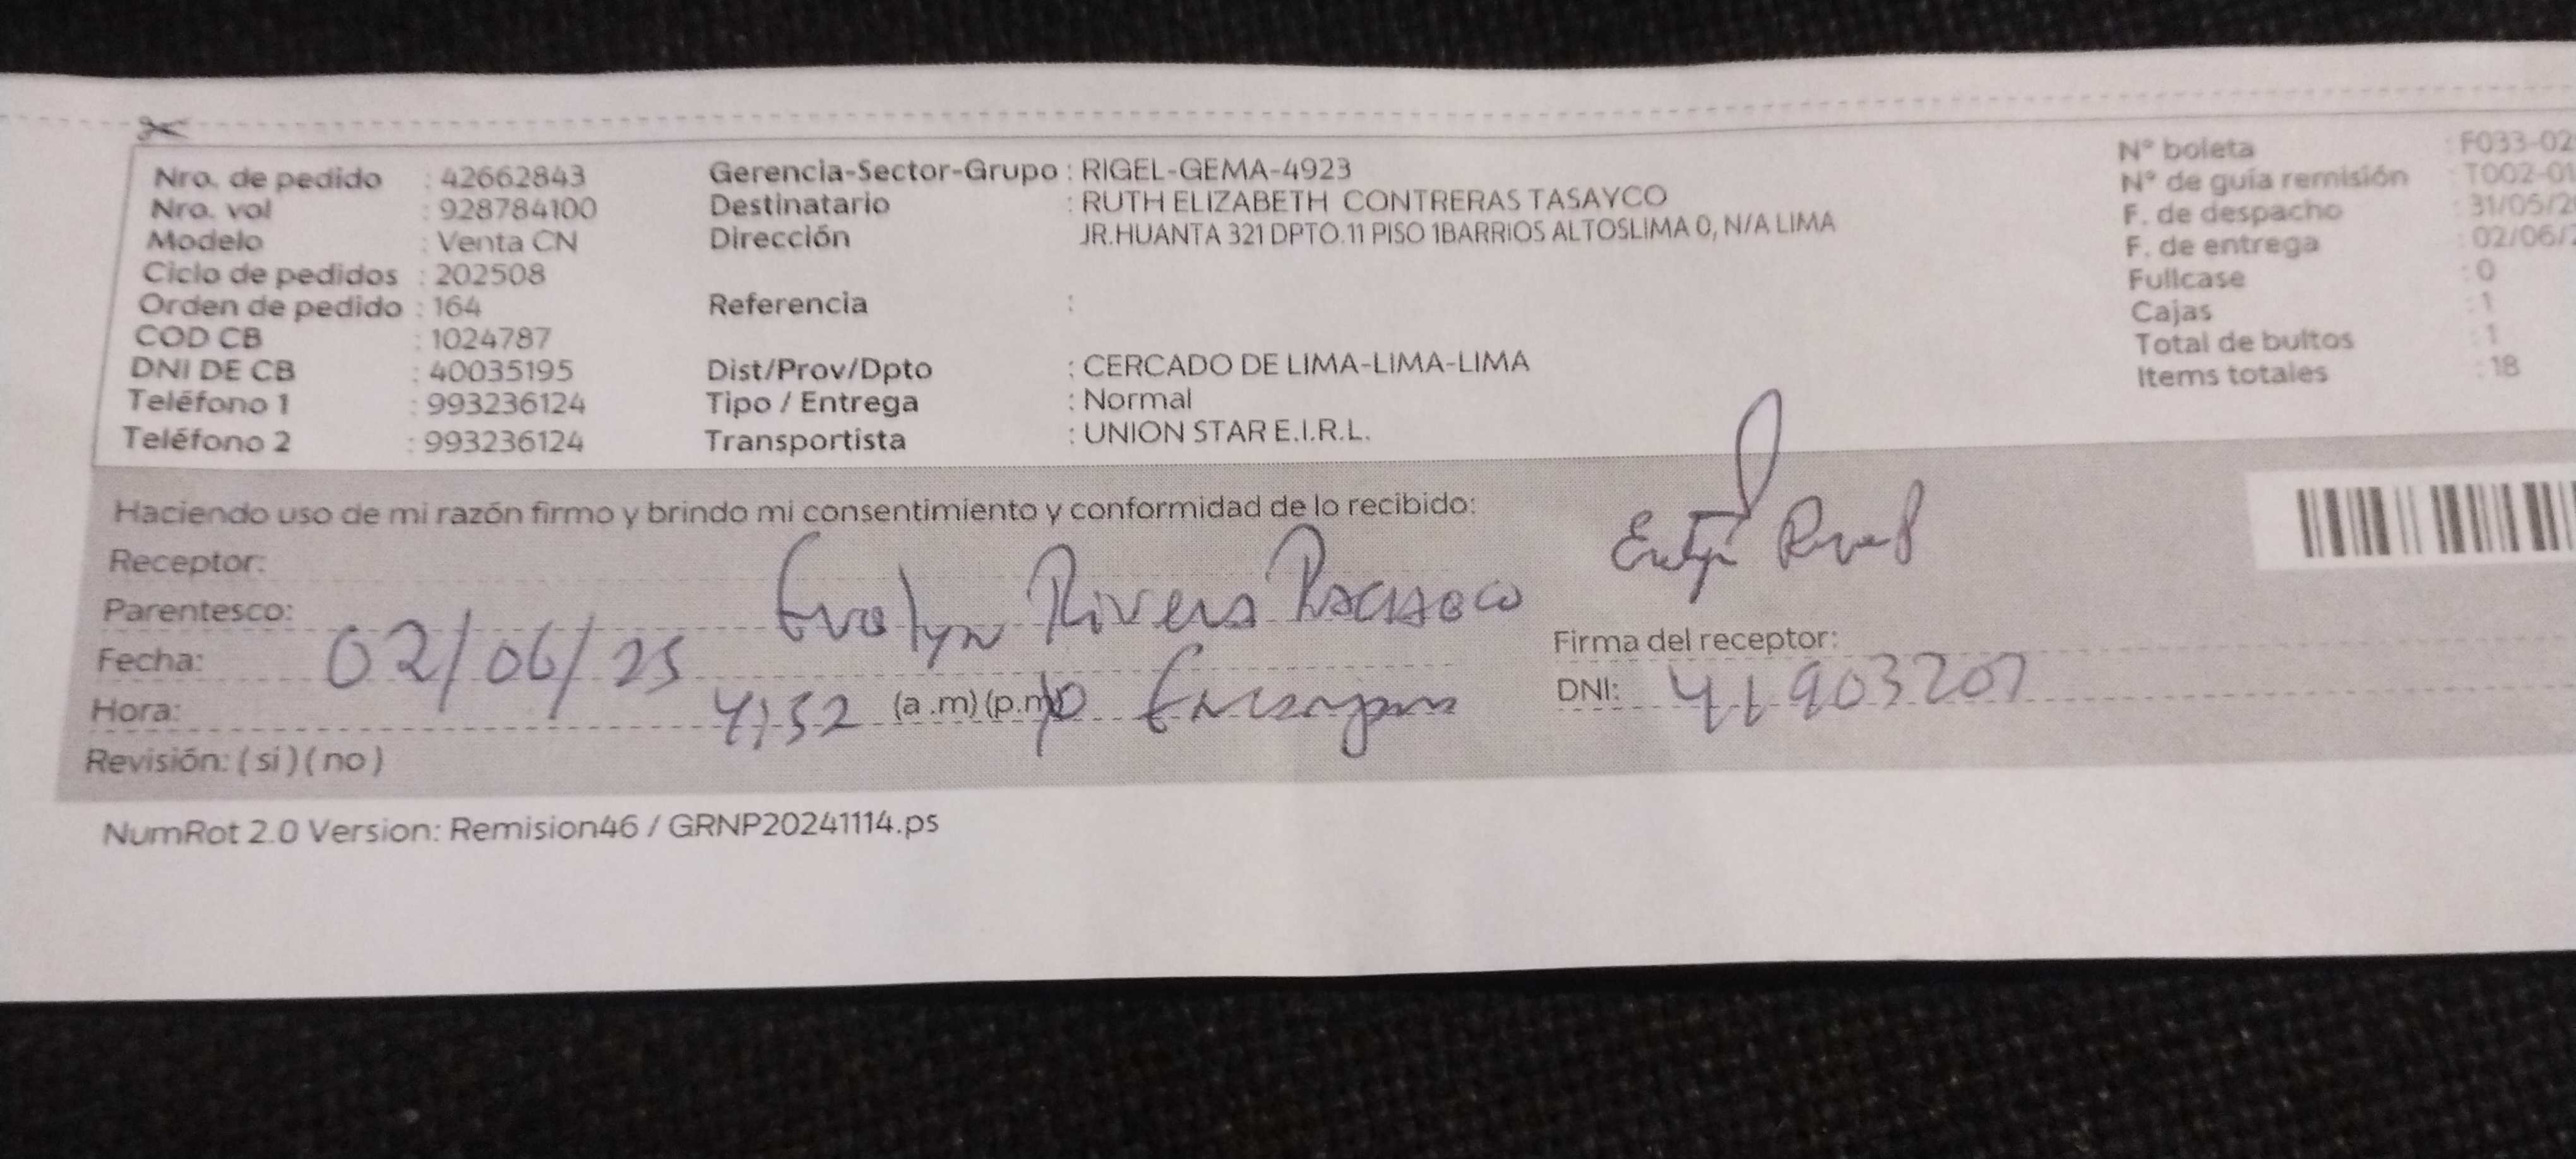 Nro. de pedido : 42662843
Nro. val : 928784100
Modelo : Venta CN
Ciclo de pedidos : 202508
Orden de pedido : 164
COD CB : 1024787
DNI DE CB : 40035195
Teléfono 1 : 993236124
Teléfono 2 : 993236124
Gerencia-Sector-Grupo : RIGEL-GEMA-4923
Destinatario : RUTH ELIZABETH CONTRERAS TASAYCO
Dirección JR.HUANTA 321 DPTO.11 PISO 1BARRIOS ALTOSLIMA 0, N/A LIMA
Referencia :
Dist/Prov/Dpto : CERCADO DE LIMA-LIMA-LIMA
Tipo / Entrega : Normal
Transportista : UNION STAR E.I.R.L.
N° boleta : F033-02
N° de guía remisión : T002-01
F. de despacho : 31/05/2
F. de entrega : 02/06/2
Fullcase : 0
Cajas : 1
Total de bultos : 1
Items totales : 18
Haciendo uso de mi razón firmo y brindo mi consentimiento y conformidad de lo recibido:
Receptor:
Parentesco: Evelyn Rivera Pacheco
Fecha: 02/06/25
Hora: 4:52 (a.m) (p.m)
Revisión: ( si ) ( no )
Firma del receptor:
DNI: 41903207
NumRot 2.0 Version: Remision46 / GRNP20241114.ps